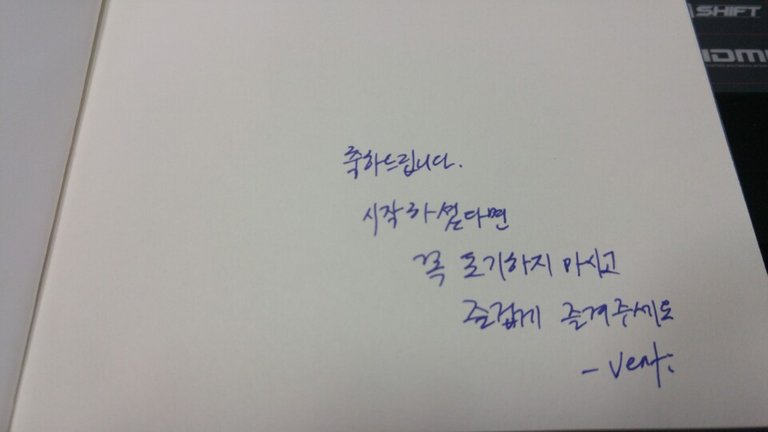 SHIFT
축하드립니다.
시작하셨다면
꼭 포기하지 마시고
즐겁게 즐겨주세요